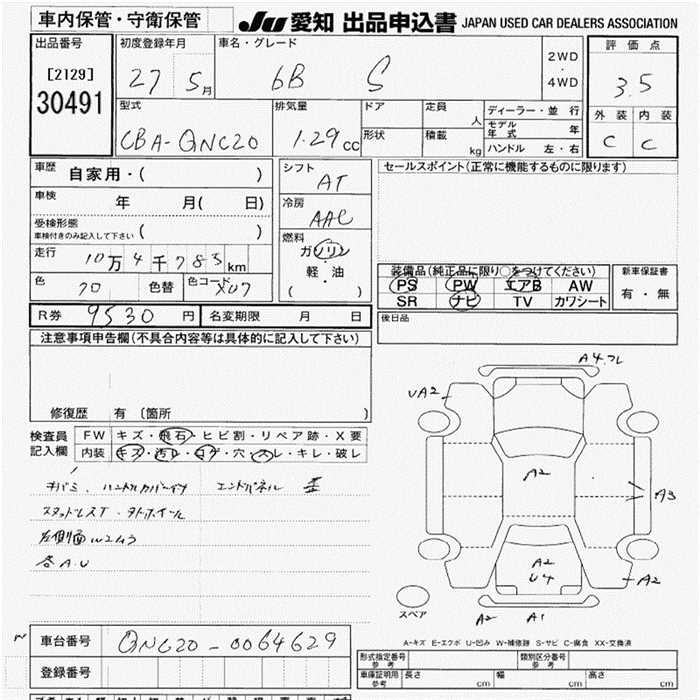 車内保管・守衛保管
JU 愛知 出品申込書 JAPAN USED CAR DEALERS ASSOCIATION
出品番号
[2129]
30491
初度登録年月
27 5月
車名・グレード
bB S
2WD
・
4WD
評価点
3.5
外装 内装
C C
型式
CBA-QNC20
排気量
1.29cc
ドア
形状
定員
人
積載
kg
ディーラー・並行
モデル年式 年
ハンドル 左・右
車歴
自家用・( )
車検
年 月( 日)
受検形態
車検付きのみ記入して下さい ( )
走行
10万4千783km
色
クロ
色替
色コード
X07
シフト
AT
冷房
AAC
燃料
ガソリン
軽・油
( )
セールスポイント(正常に機能するものに限ります)
装備品(純正品に限り○をつけてください)
PS PW エアB AW
SR ナビ TV カワシート
新車保証書
有・無
後日品
R券 9530円
名変期限 月 日
注意事項申告欄(不具合内容等は具体的に記入して下さい)
修復歴 有 〔箇所 〕
検査員
記入欄
FW キズ・飛石・ヒビ割・リペア跡・X要
内装 キズ・汚レ・コゲ・穴・スレ・キレ・破レ
スタッドレスT・
左側面
各A.U
A4 フレ
UA2
A2
A3
A2
U4
A2
A2
A1
スペア
A-キズ E-エクボ U-凹み W-補修跡 S-サビ C-腐食 XX-交換済
車台番号
QNC20-0064629
登録番号
形式指定番号
参考
類別区分番号
参考
車庫証明用
参考
長さ cm 幅 cm 高さ cm